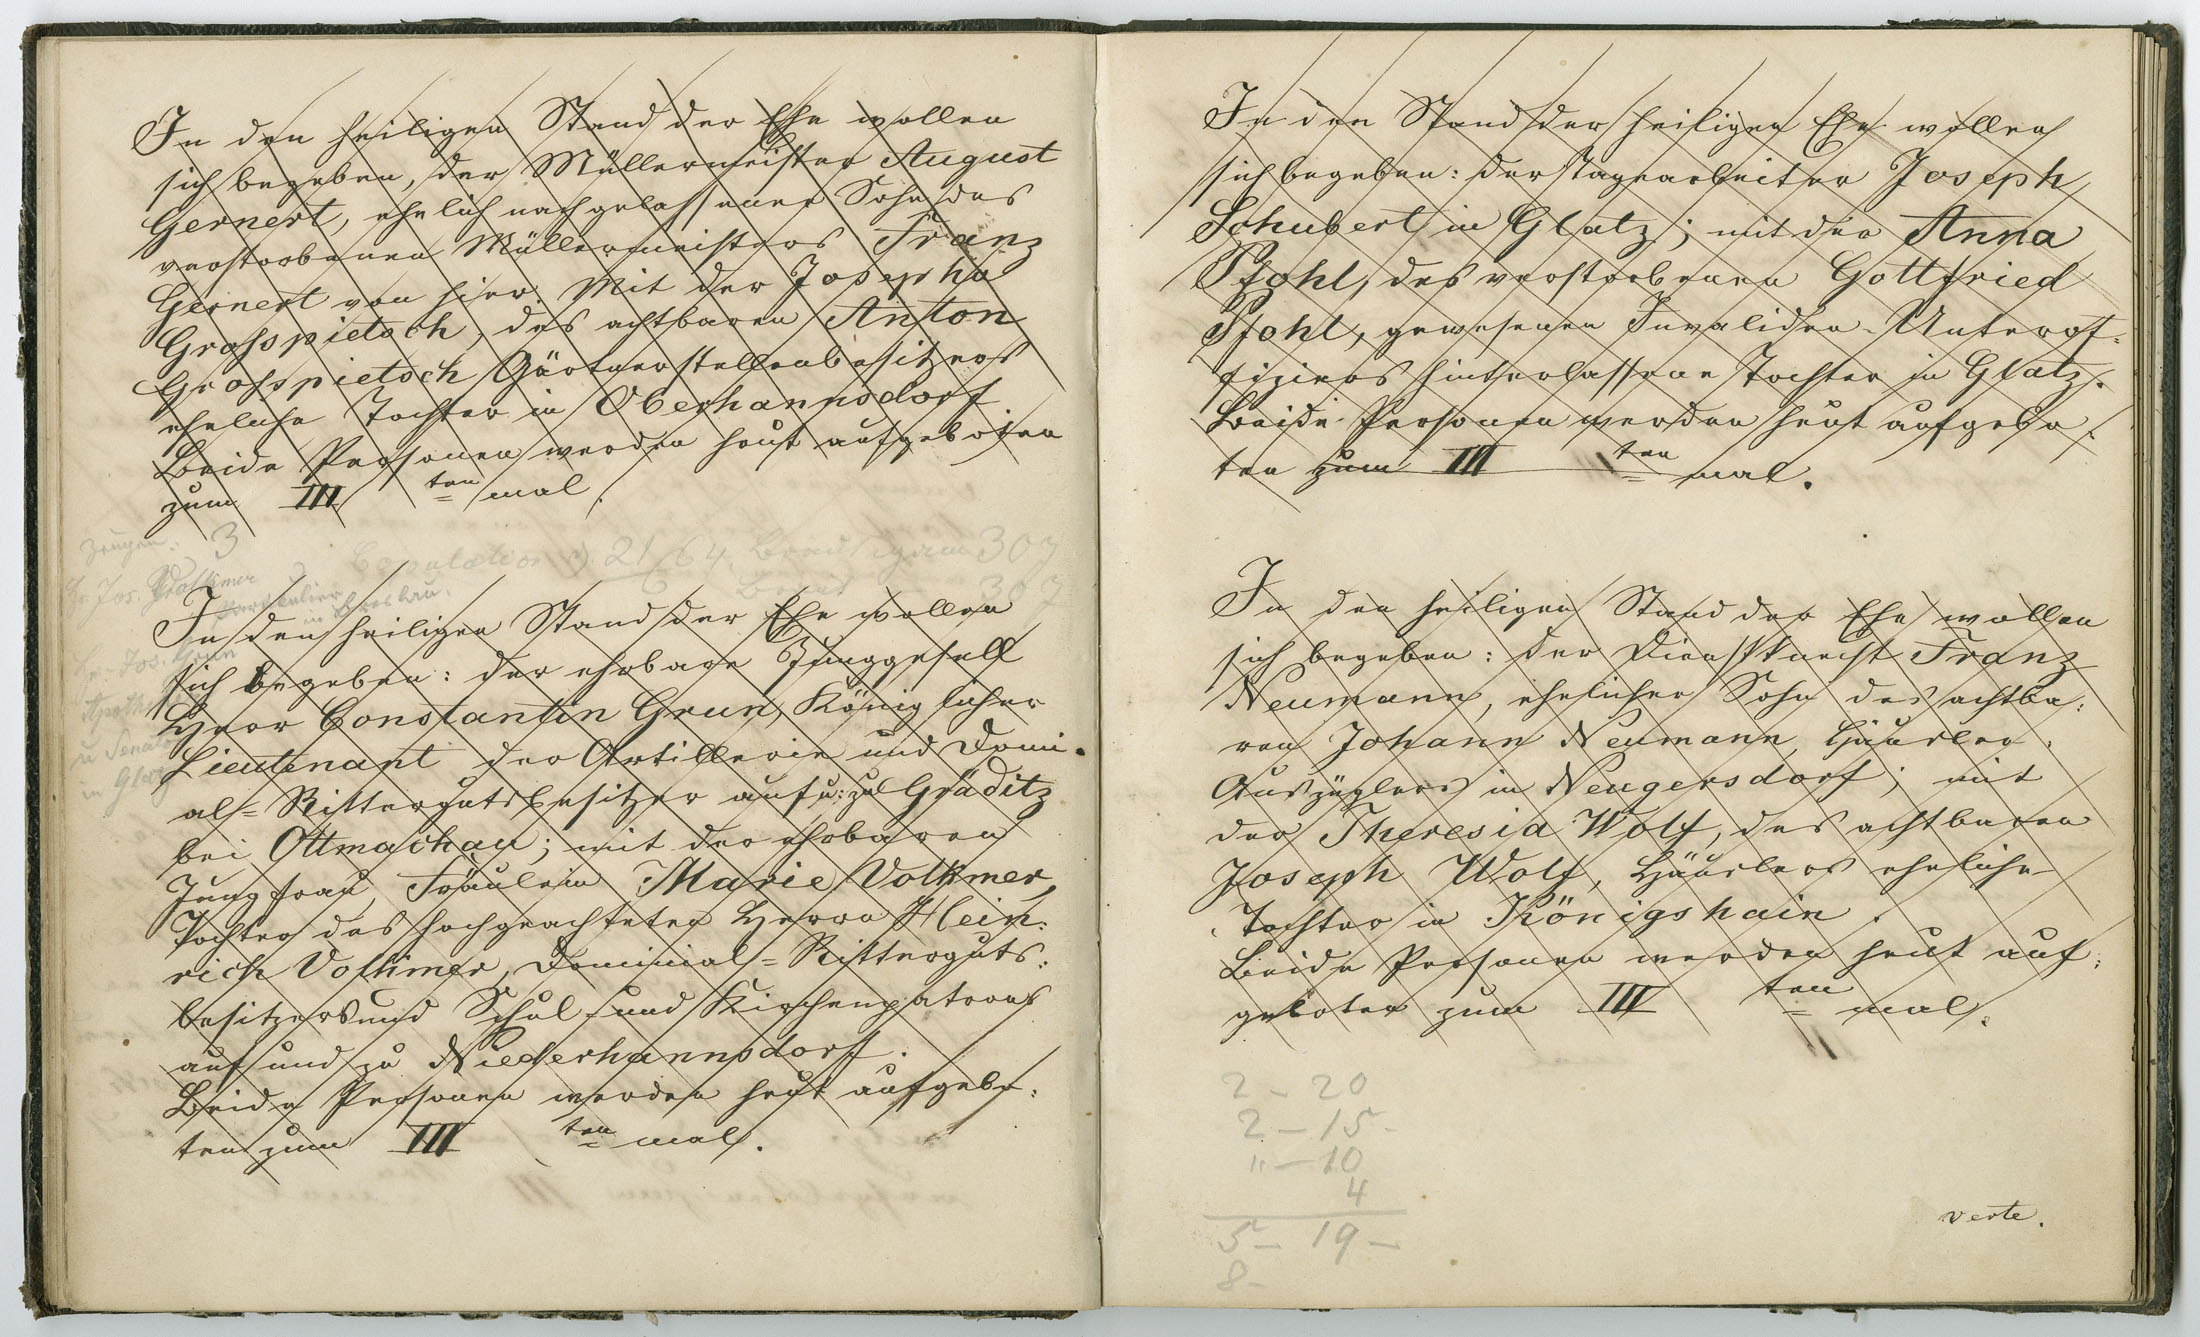 In den heiligen Stand der Ehe wollen
sich begeben, der Müllermeister August
Gernert, ehelich nachgelassener Sohn des
verstorbenen Müllermeisters Franz
Gernert von hier. Mit der Josepha
Grosspietsch, des achtbaren Anton
Grosspietsch Gärtnerstellenbesitzers
eheliche Tochter in Oberhannsdorf
Beide Personen werden heut aufgeboten
zum III ten mal.
Zeugen: 3
Jos. Volkmer
in Breslau.
Copulation 21/6 64. Bräutigam 30
Braut 30
Jos. Grun
u Senator
in Glatz
In den heiligen Stand der Ehe wollen
sich begeben: der ehrbare Junggesell
Herr Constantin Grun, Königlicher
Lieutenant der Artillerie und Domi-
al-Rittergutsbesitzer auf u: zu Gräditz
bei Ottmachau; mit der ehrbaren
Jungfrau, Fräulein Marie Volkmer,
Tochter des hochgeachteten Herrn Hein:
rich Volkmer, Dominial-Ritterguts:
besitzers und Schul- und Kirchenpatrons
auf und zu Niederhannsdorf.
Beide Personen werden heut aufgebo:
ten zum III ten mal.
In den Stand der heiligen Ehe wollen
sich begeben: der Tagearbeiter Joseph
Schubert in Glatz; mit der Anna
Pfohl, des verstorbenen Gottfried
Pfohl, gewesenen Invaliden-Unterof:
fiziers hinterlassene Tochter in Glatz.
Beide Personen werden heut aufgebo:
ten zum III ten mal.
In den heiligen Stand der Ehe wollen
sich begeben: der Dienstknecht Franz
Neumann, ehelicher Sohn des achtba:
ren Johann Neumann, Häusler:
Auszüglers in Neugersdorf; mit
der Theresia Wolf, des achtbaren
Joseph Wolf, Häuslers eheliche
Tochter in Königshain.
Beide Personen werden heut auf:
geboten zum III ten mal.
2 - 20
2 - 15 -
" - 10
4
5 - 19 -
8 -
verte.